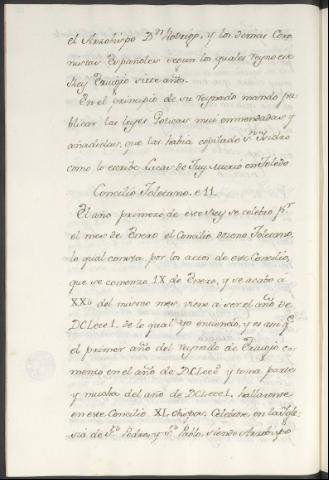 el Arzobispo Dn Rodrigo, y los demas Coro
nistas Españoles segun los quales reyno ese
Rey Eruigio siete años.
En el principio de su reynado mando pu
blicar las leyes Goticas mui enmendadas y
anadidas, que las habia copilado Sn Isidro
como lo escribe Lucas de Tuy. Murio en Toledo
Concilio Toletano. e 11.
El año primero de este Rey se celebro pr
el mes de Enero el Concilio doceno Toletano,
lo qual consta por los actos de este Concilio,
que se comenzo IX de Enero, y se acabo á
XXv del mismo mes, viene a ser el año de
DCLccc1. de lo qual yo entiendo, y es asi q
el primer año del reynado de Eruigio co
menzo en el año de DCLccc y toma parte
y mucha del año de DCLccc1. hallaronse
en este Concilio XL obispos. Celebrose en la Igle
sia de Sn Pedro, y Sn Pablo, siendo Arzobispo